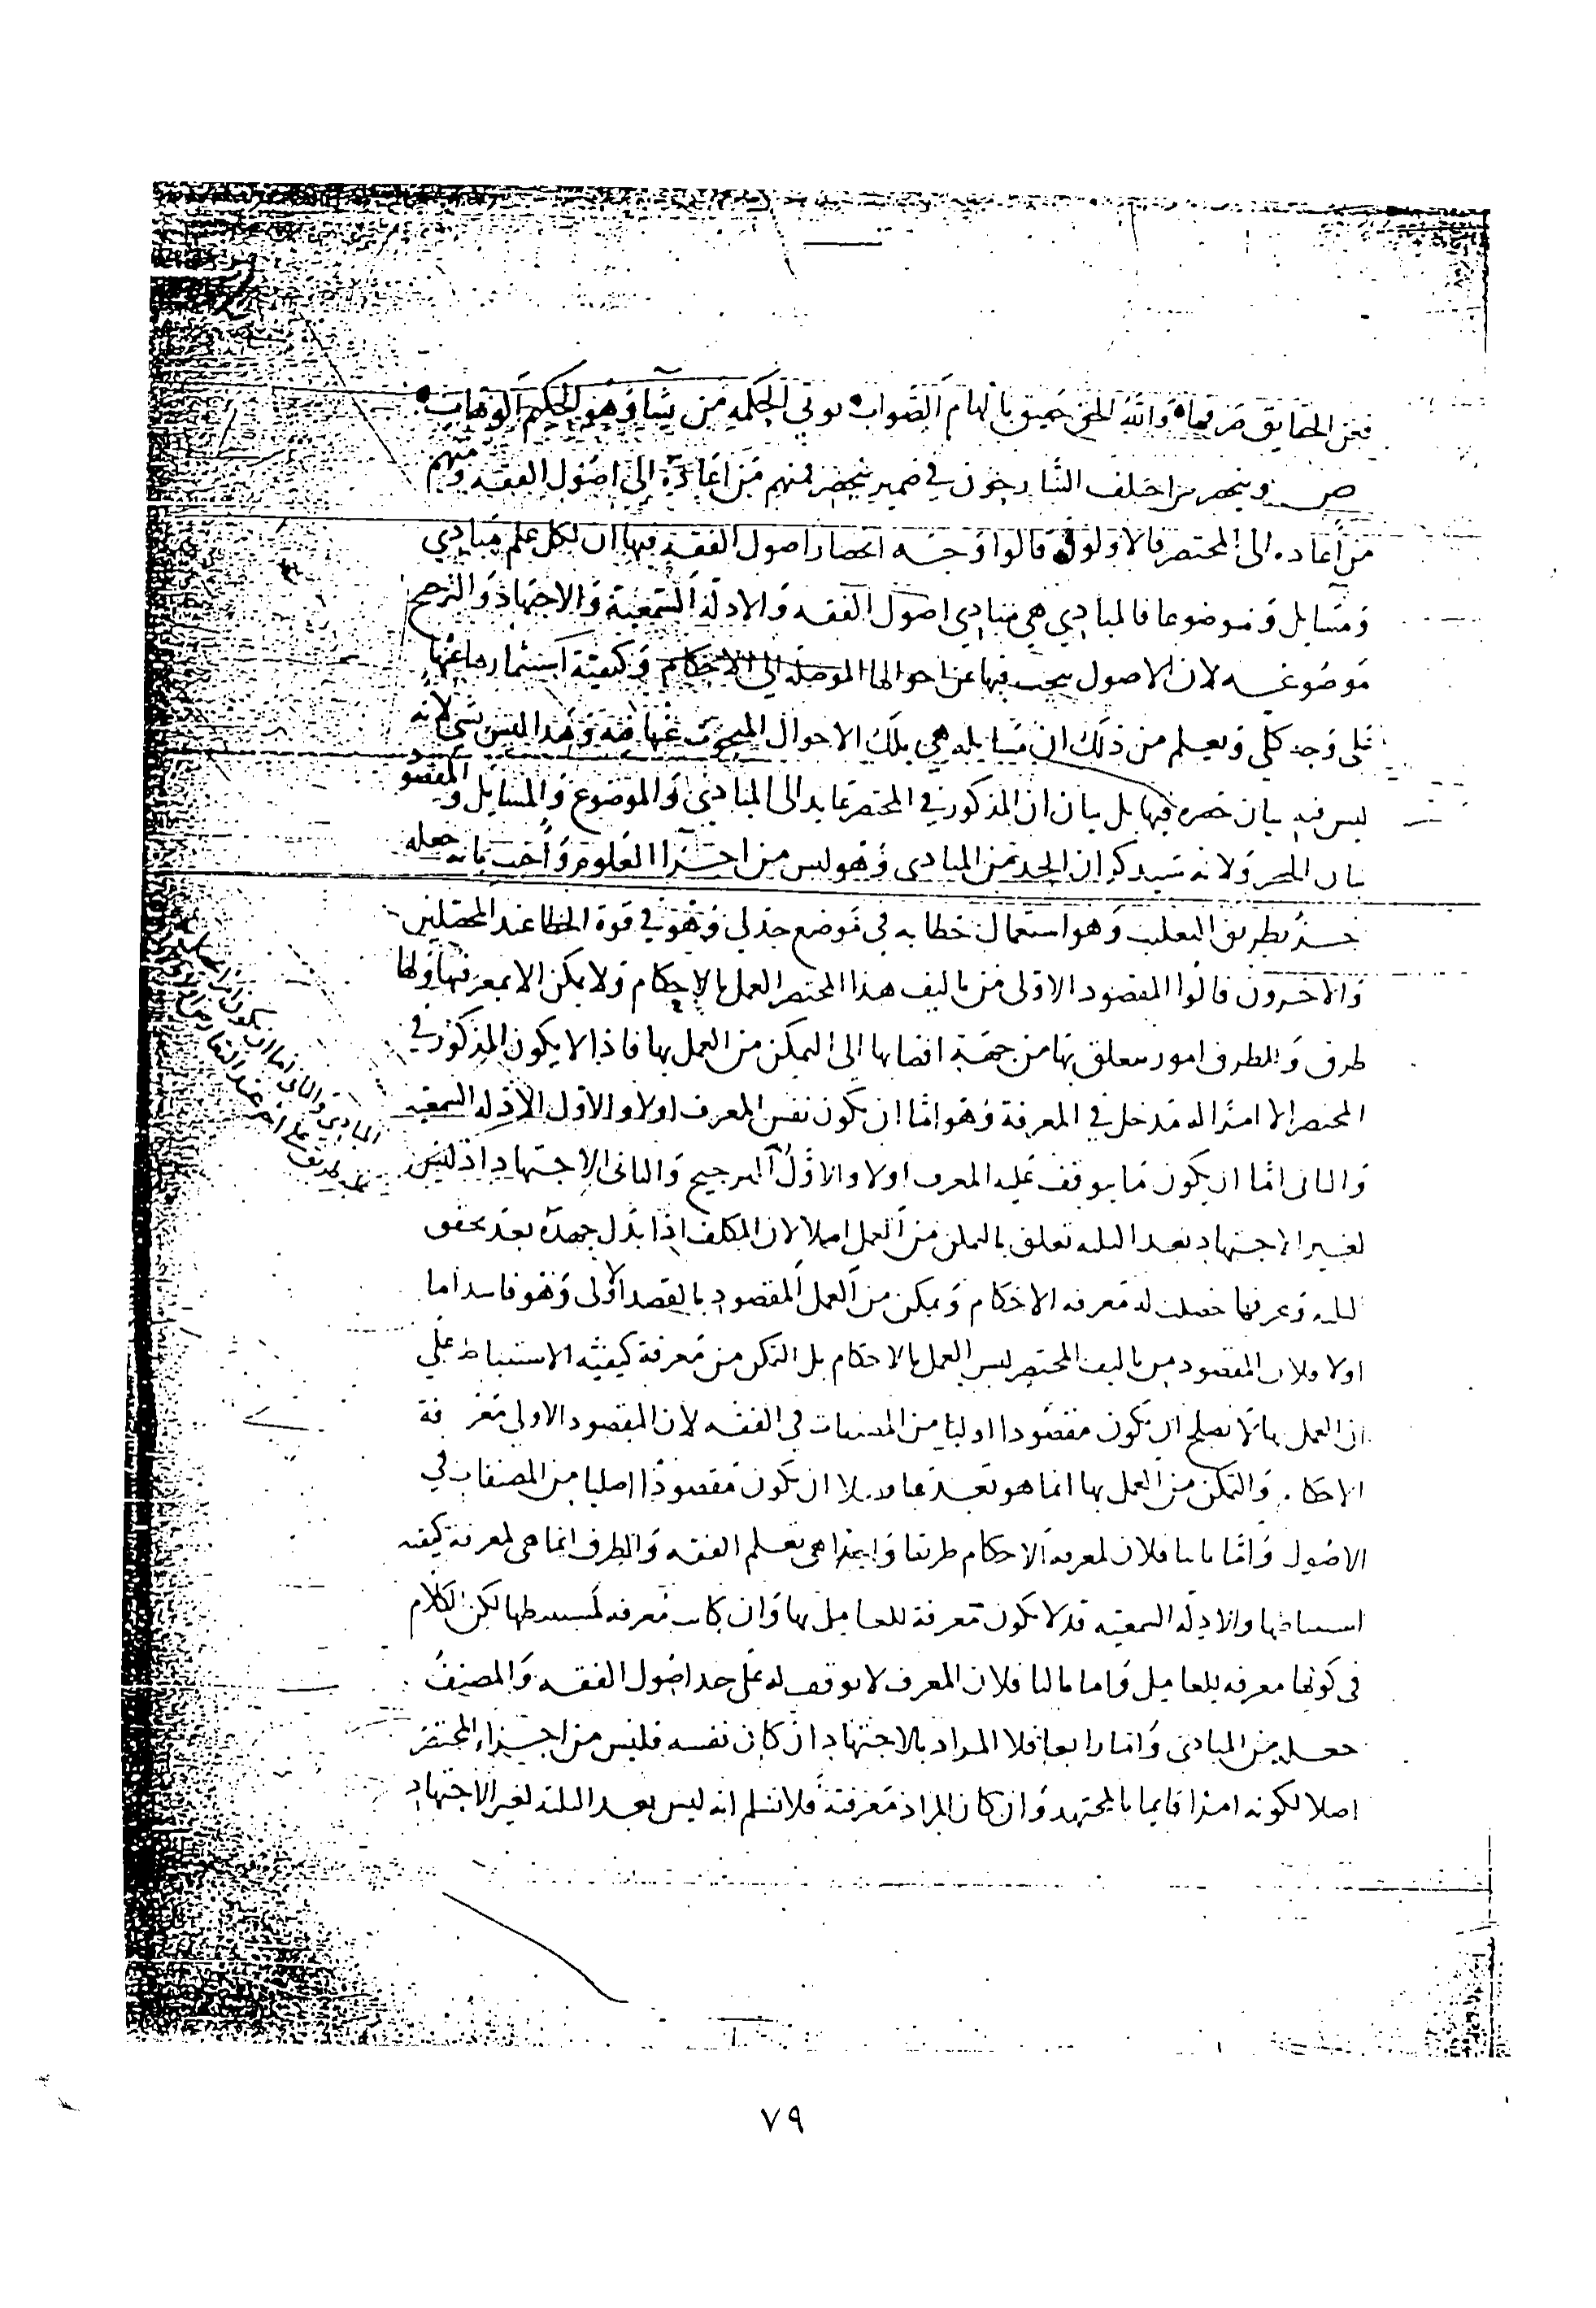 فعن الحقايق مزيفها والله الحق حقيق بالهام الصواب يوتي الحكمه من يشا وهو الحكيم الوهاب
ص وينحصر ش اختلف الشارحون في ضمير ينحصر فمنهم من اعاده الى اصول الفقه ومنهم
من اعاده الى المختصر فالاولون قالوا وجه انحصار اصول الفقه فيها ان لكل علم مبادي
ومسايل وموضوعا فالمبادي هي مبادي اصول الفقه والادلة السمعية والاجتهاد والترجيح
موضوعه لان الاصول يبحث فيها عن احوالها الموصله الى الاحكام وكيفية استثمارها عنها
على وجه كلي ويعلم من ذلك ان مسايله هي تلك الاحوال المبحوث عنها فيه وهذا ليس بشي لانه
ليس فيه بيان حصره فيها بل بيان ان المذكور في المختصر عايد الى المبادي والموضوع والمسايل والمقصود
بيان الحصر ولانه سيذكر ان الحد من المبادى وهو ليس من اجزا العلوم واجيب بانه جعله
جزؤ بطريق التغليب وهو استعمال خطابه في موضع جدلي وهو في قوة الخطا عند المحصلين
والاخرون قالوا المقصود الاولى من تاليف هذا المختصر العمل بالاحكام ولا يمكن الا بمعرفتها ولها
طرق وللطرق امور متعلق بها من جهة افضايها الى التمكن من العمل بها فاذا لا يكون المذكور في
المختصر الا امرا له مدخل في المعرفة وهو اما ان يكون نفس المعرف اولا والاول الادله السمعيه
والثاني اما ان يكون ما يتوقف عليه المعرف اولا والاول الترجيح والثاني الاجتهاد اذ ليس
لغير الاجتهاد بعد الثلثه تعلق بالتمكن من العمل اصلا لان المكلف اذا بذل جهده بعد تحقق
الثلثه وعرفها حصلت له معرفه الاحكام وتمكن من العمل المقصود بالقصد الاولى وهو فاسد اما
اولا فلان المقصود من تاليف المختصر ليس العمل بالاحكام بل التمكن من معرفة كيفيته الاستنباط على
ان العمل بها لا يصلح ان يكون مقصودا اوليا من المصنفات في الفقه لان المقصود الاولى معرفة
الاحكام والتمكن من العمل بها انما هو بعدها فضلا ان يكون مقصودا اصليا من المصنفات في
الاصول واما ثانيا فلان لمعرفة الاحكام طريقا واحدا هي تعلم الفقه والطرق انما هى لمعرفة كيفيه
استنباطها والادلة السمعيه قد لا يكون معرفة للعامل بها وان كانت معرفه لمستنبطها لكن الكلام
في كونها معرفه للعامل واما ثالثا فلان المعرف لا توقف له على حد اصول الفقه والمصنف
جعله من المبادي واما رابعا فلان المراد بالاجتهاد ان كان نفسه فليس من اجزاء المختصر
اصلا لكونه امرا قايما بالمجتهد وان كان المراد معرفته فلا نسلم انه ليس بعد الثلثه لغير الاجتهاد
المبادي والثاني اما ان يكون
على اخر عند التعارض
٧٩